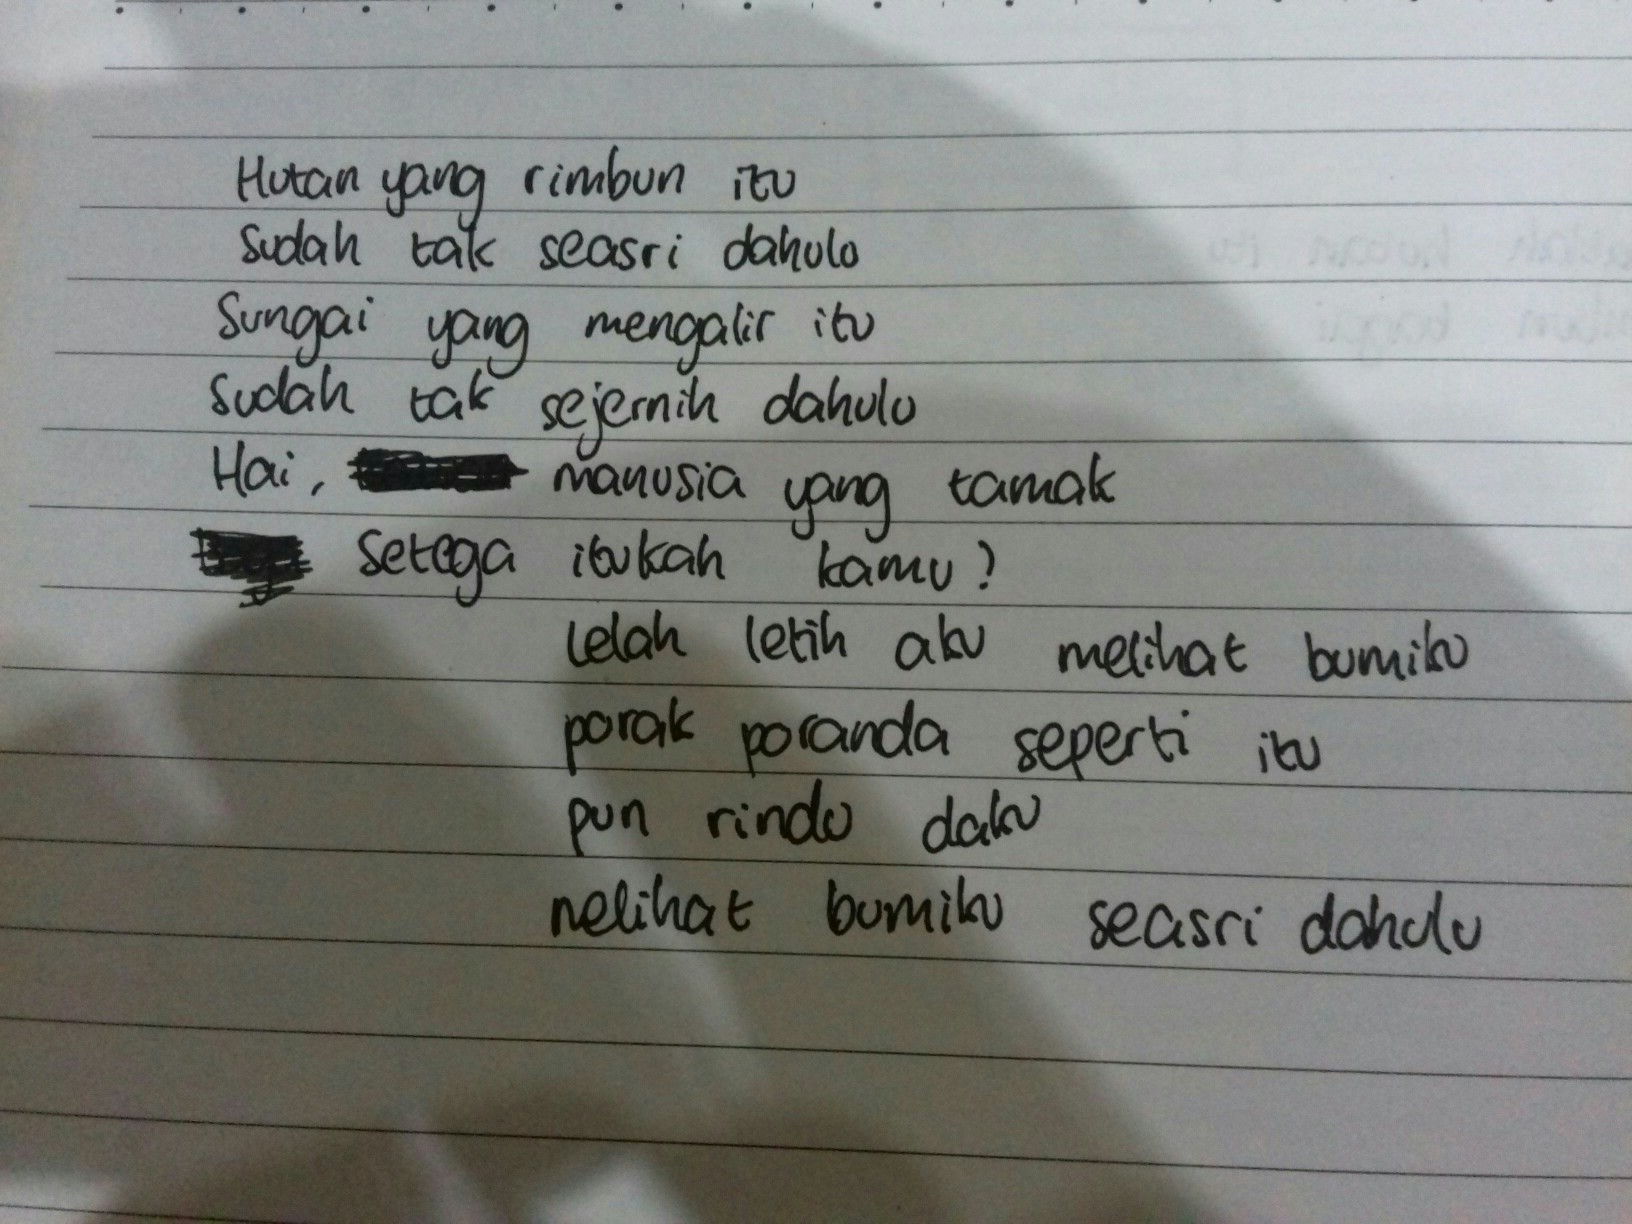 Hutan yang rimbun itu
Sudah tak seasri dahulu
Sungai yang mengalir itu
Sudah tak sejernih dahulu
Hai, manusia yang tamak
Setega itukah kamu?
Lelah letih aku melihat bumiku
porak poranda seperti itu
pun rindu daku
melihat bumiku seasri dahulu